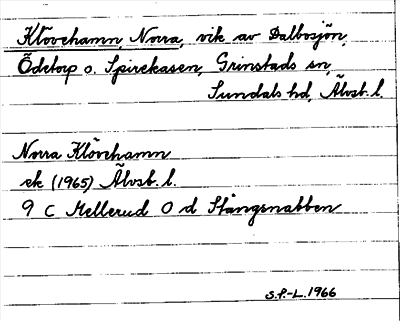 Klövehamn, Norra, vik av Dalbosjön,
Ödetorp o. Spirekasen, Grinstads sn,
Sundals hd, Älvsb. l.
Norra Klövehamn
ek (1965) Älvsb. l.
9 C Mellerud O d Stångsnabben
S.F.-L. 1966